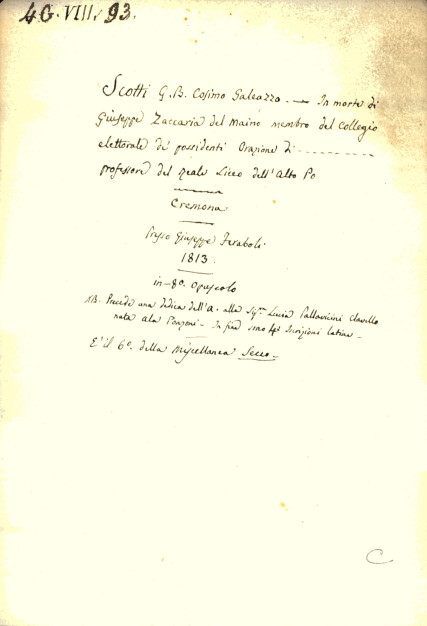 4G. VIII. 93.
Scotti G.B. Cosimo Galeazzo. — In morte di
Giuseppe Zaccaria del Maino membro del Collegio
elettorale de' possidenti Orazione di ..........
professore del Reale Liceo dell'Alto Po
Cremona
Presso Giuseppe Feraboli
1813.
in-8º. Opuscolo
NB. Precede una dedica dell'A. alla Sigra Lucia Pallavicini
nata Ala Ponzoni - In fine sono Iscrizioni latine -
E' il 6º. della Miscellanea Secco.
C